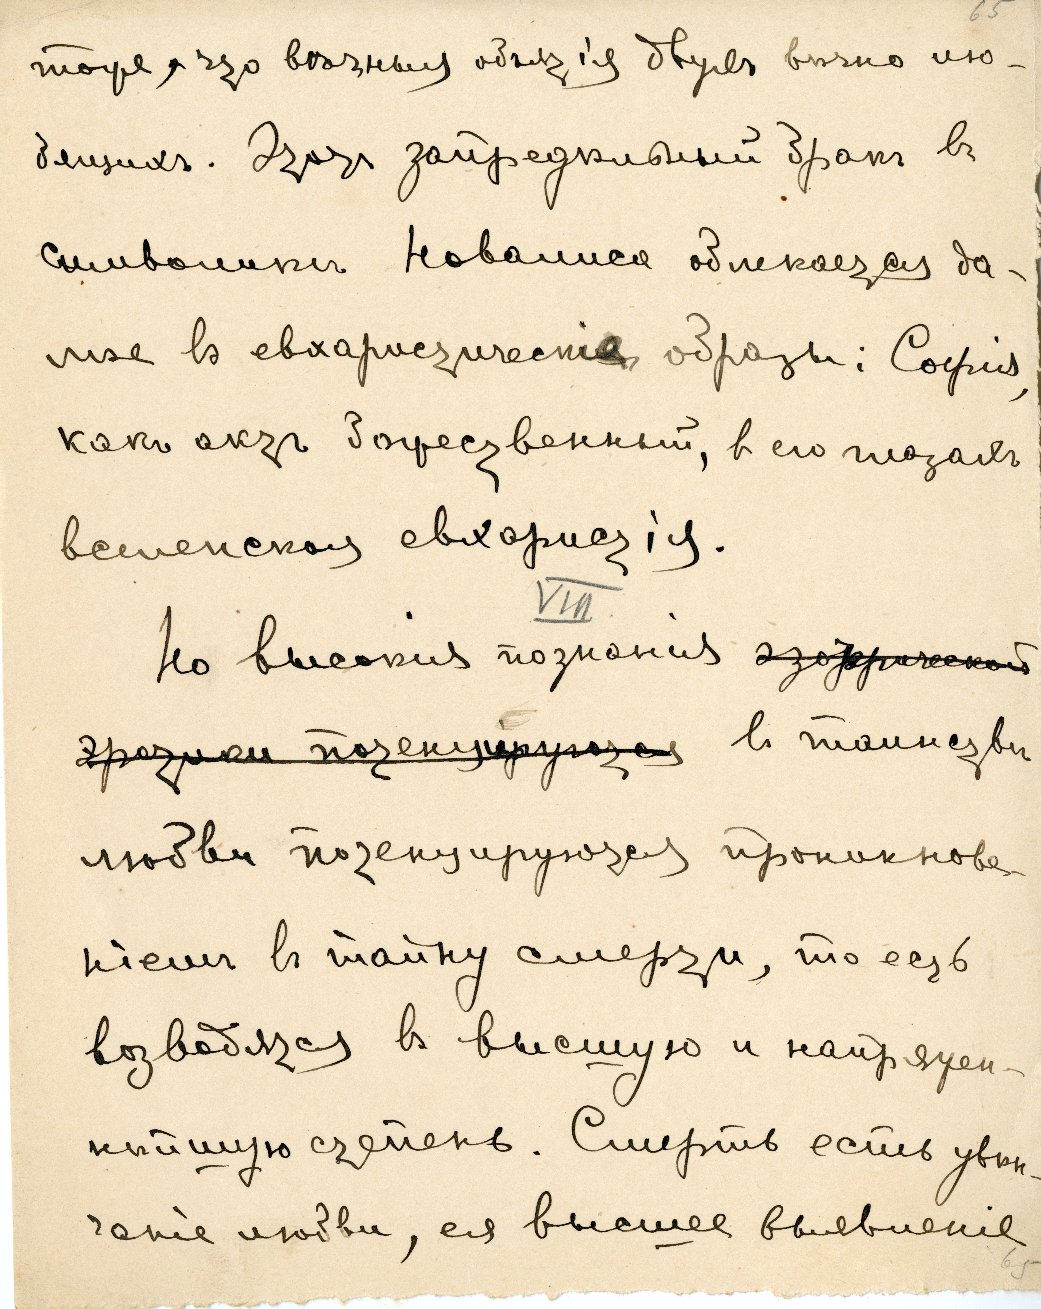 65
тоже, что вѣчныя объятія двухъ вѣчно лю-
бящихъ. Этотъ запредѣльный бракъ въ
символикѣ Новалиса облекается да-
лѣе въ евхаристическіе образы: Софія,
какъ актъ божественный, в его глазахъ
вселенская евхаристія.
VIII
Но высокія познанія эзотерической
эротики потенцируются въ таинствѣ
любви потенцируются проникнове-
ніемъ въ тайну смерти, то есть
возводятся въ высшую и напряжен-
нѣйшую степень. Смерть есть увѣн-
чаніе любви, ея высшее выявленіе
65